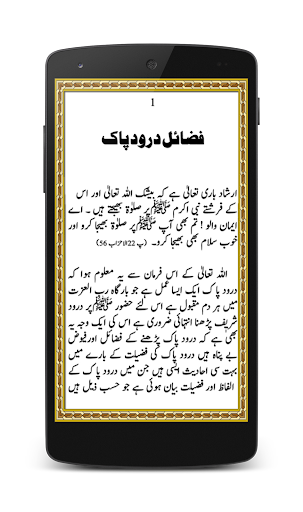 1
فضائل درود پاک
ارشاد باری تعالیٰ ہے کہ بیشک اللہ تعالیٰ اور اس
کے فرشتے نبی اکرم ﷺ پر صلوٰۃ بھیجتے ہیں ۔ اے
ایمان والو ! تم بھی آپ ﷺ پر صلوٰۃ بھیجا کرو اور
خوب سلام بھی بھیجا کرو۔ (پ 22 الاحزاب 56)
اللہ تعالیٰ کے اس فرمان سے یہ معلوم ہوا کہ
درود پاک ایک ایسا عمل ہے جو بارگاہ رب العزت
میں ہر دم مقبول ہے اس لئے حضور ﷺ پر درود
شریف پڑھنا انتہائی ضروری ہے اس کی ایک وجہ یہ
بھی ہے کہ درود پاک پڑھنے کے فضائل اور فیوض
بے پناہ ہیں درود پاک کی فضیلت کے بارے میں
بہت سی احادیث ایسی ہیں جن میں درود پاک کے
الفاظ اور فضیلت بیان ہوئی ہے جو حسب ذیل ہیں